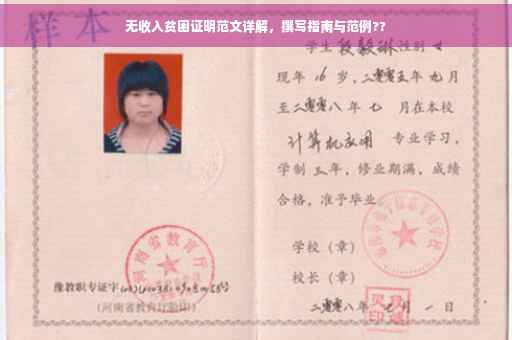 无收入贫困证明范文详解，撰写指南与范例??
样本
学生段毅琳性别女
现年16岁，二零零五年九月
至二零零八年七 月在本校
计算机应用 专业学习，
学制三年，修业期满，成绩
合格，准予毕业
学校（章）
校长（章）
河南省教育厅
豫教职专证字
(河南省教育厅验印)
二零零八年七月一日